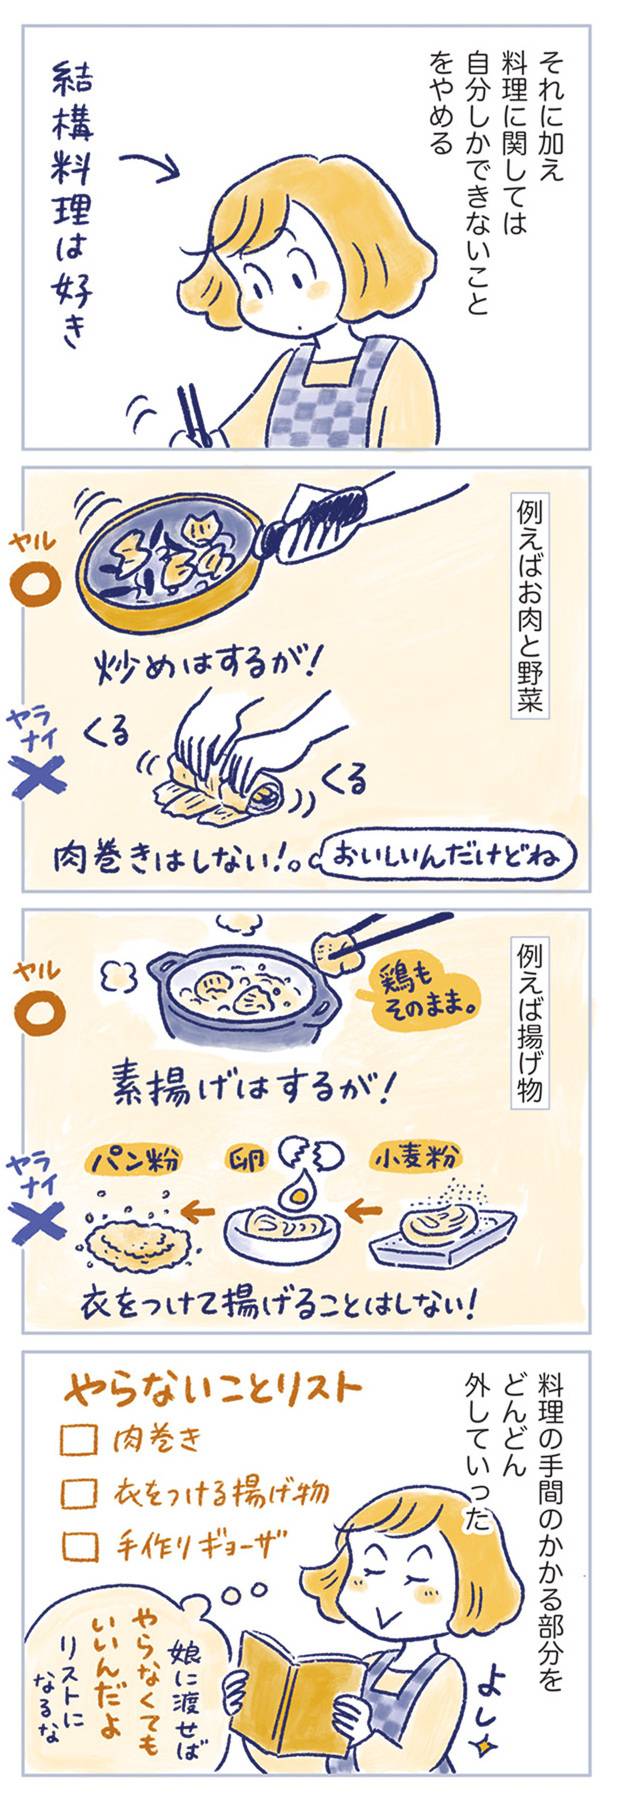 それに加え
料理に関しては
自分しかできないこと
をやめる
結構料理は好き
例えばお肉と野菜
ヤル
炒めはするが！
ヤラ
ナイ
くる
くる
肉巻きはしない！。
おいしいんだけどね
例えば揚げ物
ヤル
鶏も
そのまま。
素揚げはするが！
ヤラ
ナイ
小麦粉
卵
パン粉
衣をつけて揚げることはしない！
料理の手間のかかる部分を
どんどん
外していった
やらないことリスト
肉巻き
衣をつける揚げ物
手作りギョーザ
よし
娘に渡せば
やらなくても
いいんだよ
リストに
なるな